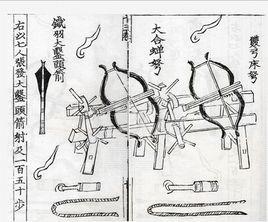 雙弓床弩
大合蟬弩
鐵羽大鑿頭箭
右以七人張發大鑿頭箭射及一百五十步